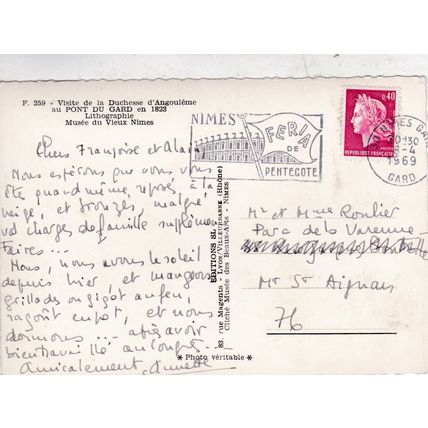 F. 259 - Visite de la Duchesse d'Angoulême
au PONT DU GARD en 1823
Lithographie
Musée du Vieux Nimes
Chers Françoise et Alain,
Nous espérons que vous vous
êtes quand même reposés, à la
neige, et bronzés, malgré
vos charges de famille supplémen
taires.
Nous, nous avons le soleil
depuis hier, et mangeons
grillades ou gigot au feu,
ragoût en pot, et nous
dormons... après avoir
bien travaillé au Congrès.
Amicalement, Annette
EDITIONS SL
83, rue Magenta - LYON/VILLEURBANNE (Rhône)
Cliché Musée des Beaux-Arts - NIMES
* Photo véritable *
NIMES
FERIA
DE
PENTECOTE
0,40
REPUBLIQUE FRANÇAISE
30 NIMES GARE
10H30
8-4
1969
GARD
Mr et Mme Roulier
Parc de la Varenne
Mt St Aignan
76